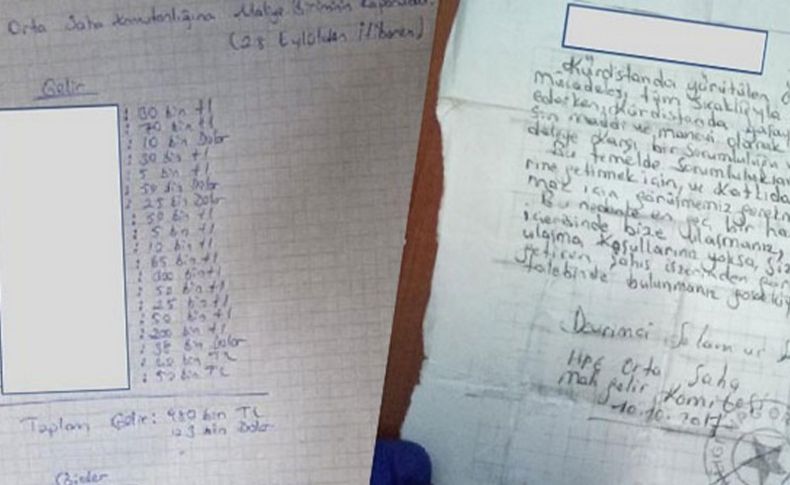 Orta Saha Komutanlığına Maliye Biriminin Raporudur.
(28 Eylülden İtibaren)
Gelir
: 30 bin tl
: 70 bin tl
: 10 bin Dolar
: 30 bin tl
: 5 bin tl
: 50 bin Dolar
: 25 bin Dolar
: 50 bin tl
: 5 bin tl
: 10 bin tl
: 65 bin tl
: 300 bin tl
: 50 bin tl
: 25 bin tl
: 50 bin tl
: 200 bin tl
: 38 bin Dolar
bin TL
: 50 bin TL
Toplam Gelir: bin TL
123 bin Dolar
Gider
Kürdistanda yürütülen
mücadelesi, tüm sıcaklığıyla
ederken, Kürdistanda yaşay
sın maddi ve manevi olarak
deleye karşı bir sorumluluğu
Bu temelde sorumluluklar
rine getirmek için, ve katkıda
mak için görüşmemiz gerekm
Bu nedenle en geç bir ha
içerisinde bize ulaşmanız,
ulaşma koşullarınız yoksa, siz
getiren şahıs üzerinden par
talebinde bulunmanız gerekiy
Devrimci Selam ve
HPG Orta Saha
Komitesi
10.10.2017